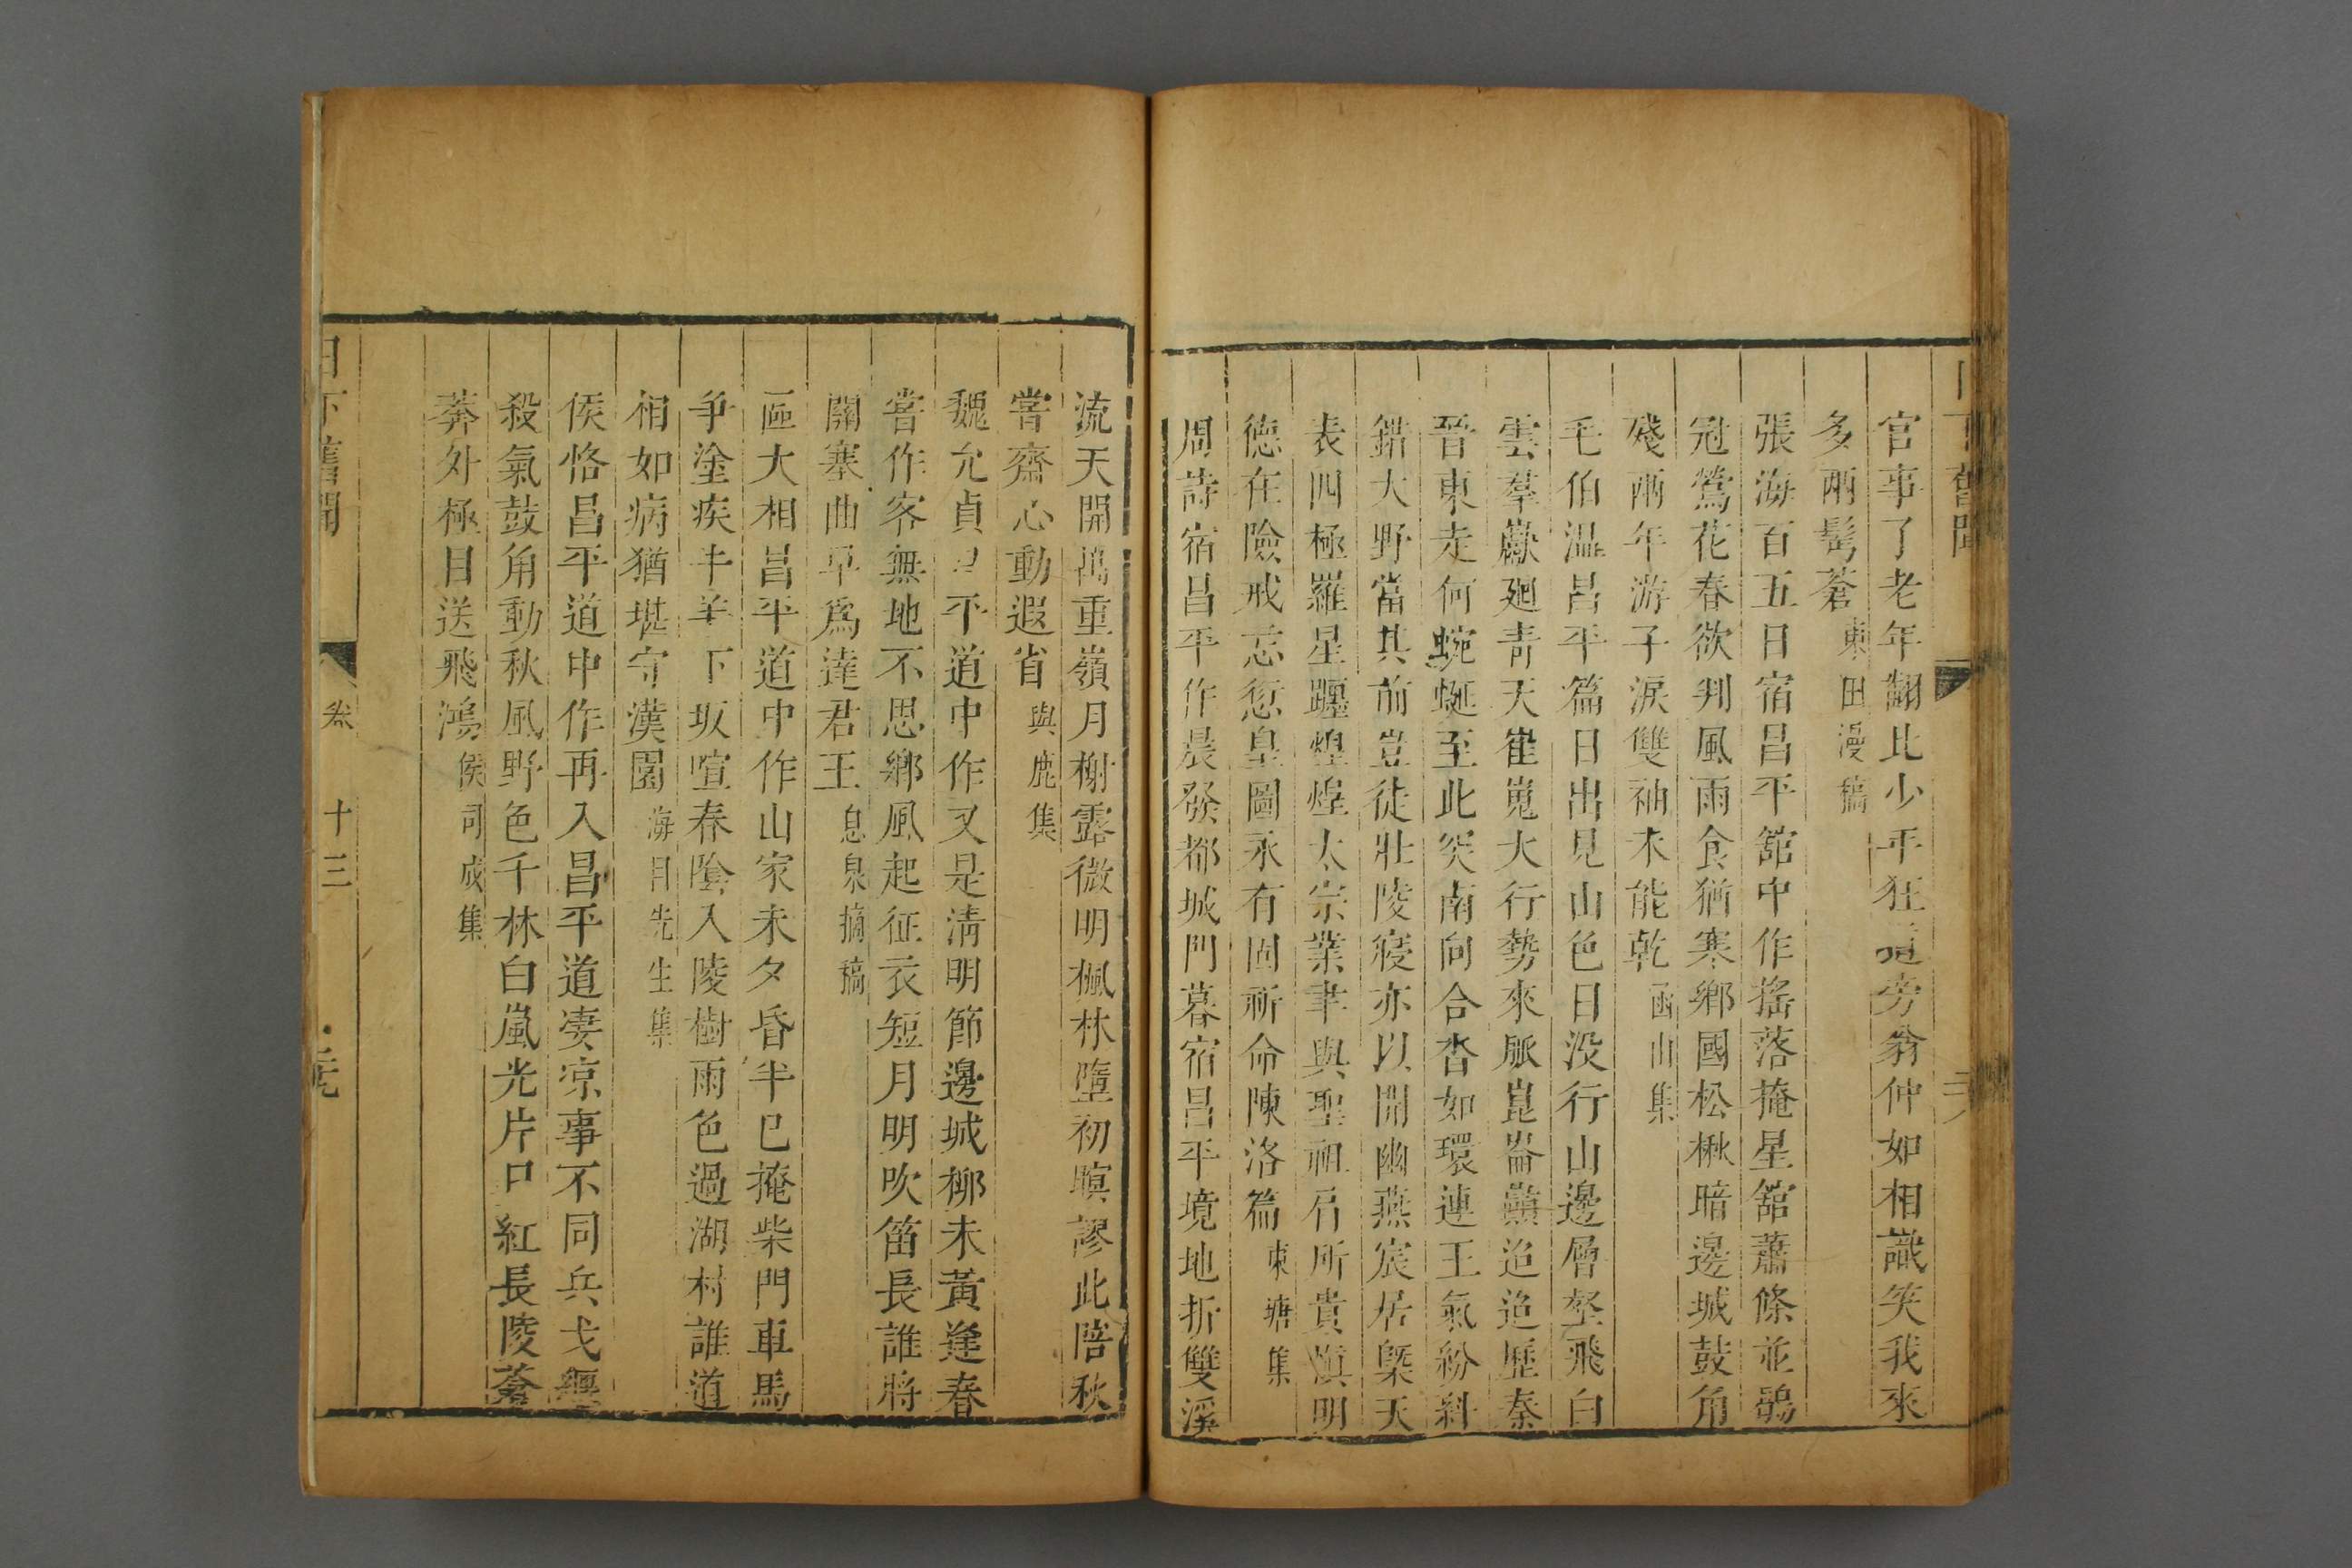 官事了老年翻比少年狂道旁翁仲如相識笑我來
多兩鬂蒼東田漫稿
張海百五日宿昌平館中作搖落掩星館蕭條並鶡
冠鶯花春欲判風雨食猶寒鄉國松楸暗邊城鼓角
殘兩年游子淚雙袖未能乾函山集
毛伯温昌平篇日出見山色日没行山邊層壑飛白
雲羣巘廻青天崔嵬大行勢來脈崑崙巔迢迢歷秦
晉東走何蜿蜒至此突南向合沓如環連王氣紛糾
錯大野當其前豈徒壯陵寢亦以開幽燕宸居槩天
表四極羅星躔煌煌太宗業聿與聖祖肩所貴滇明
德在險戒忘愆皇圖永有固祈命陳洛篇東塘集
周詩宿昌平作晨發都城門暮宿昌平境地折雙溪
流天開萬重嶺月榭露微明楓林墮初暝謬此陪秋
嘗齋心動遐省與鹿集
魏允貞昌平道中作又是清明節邊城柳未黃逢春
嘗作客無地不思鄉風起征衣短月明吹笛長誰將
關塞曲早爲達君王息泉摘稿
區大相昌平道中作山家未夕昏半已掩柴門車馬
爭塗疾牛羊下坂喧春陰入陵樹雨色過湖村誰道
相如病猶堪守漢園海目先生集
侯恪昌平道中作再入昌平道凄凉事不同兵戈纒
殺氣鼓角動秋風野色千林白嵐光片口紅長陵蒼
莽外極目送飛鴻侯司成集
日下舊聞
卷
十三